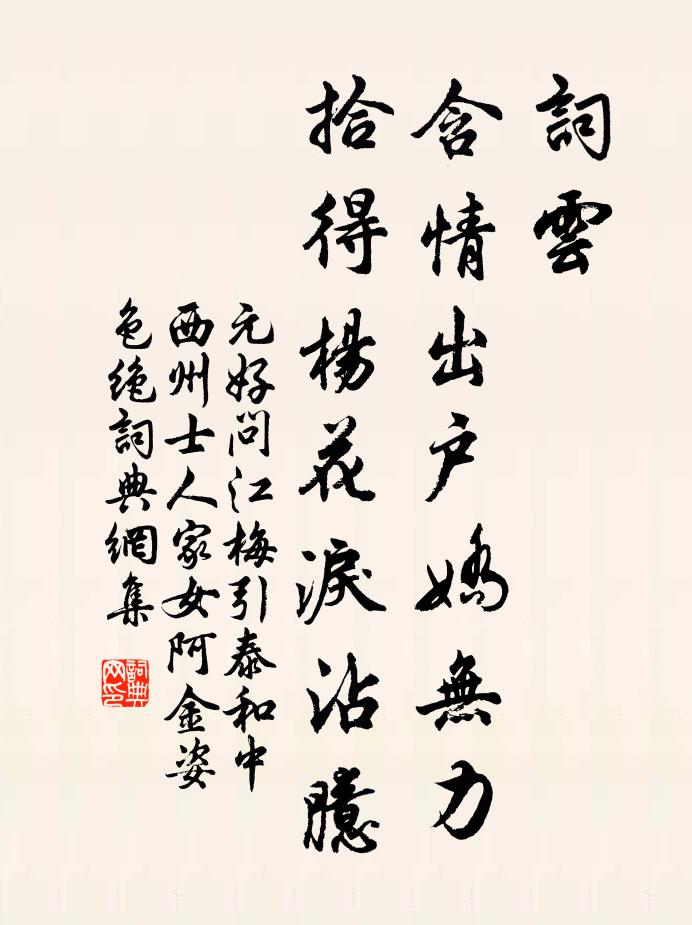 詞雲
含情出戶嬌無力
拾得楊花淚沾臆
元好問江梅引泰和中
西州士人家女阿金姿
色絶詞典網集
詞典
网印